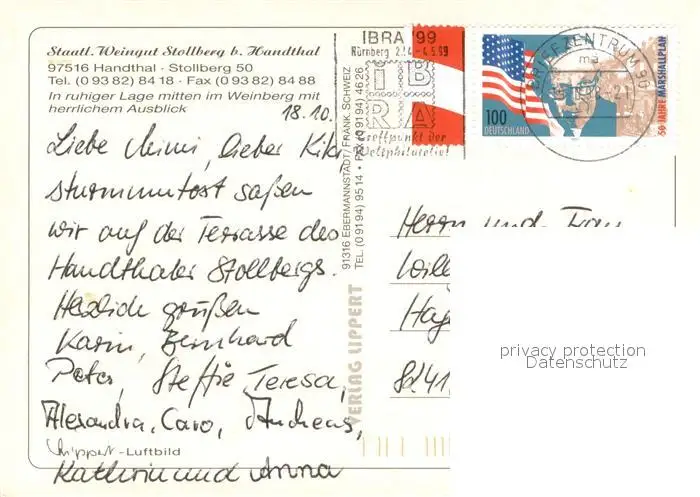 Staatl. Weingut Stollberg b. Handthal
97516 Handthal · Stollberg 50
Tel. (0 93 82) 84 18 · Fax (0 93 82) 84 88
In ruhiger Lage mitten im Weinberg mit
herrlichem Ausblick
18.10.
Liebe Mimi, lieber Kiki
sturmumtost saßen
wir auf der Terrasse des
Handthaler Stollbergs.
Herzlich grüßen
Karin, Bernhard
Peter, Steffie, Teresa,
Alexandra, Caro, Andreas,
Kathrin und Anna
Lippert-Luftbild
VERLAG LIPPERT
91316 EBERMANNSTADT / FRÄNK. SCHWEIZ
TEL. (0 91 94) 95 14 • FAX (0 91 94) 46 26
IBRA '99
Nürnberg 27.4.-4.5.99
IB
RA
Treffpunkt der
Weltphilatelie!
BRIEFZENTRUM 96
ma
100
DEUTSCHLAND
50 JAHRE MARSHALLPLAN
Herrn und Frau
privacy protection
Datenschutz